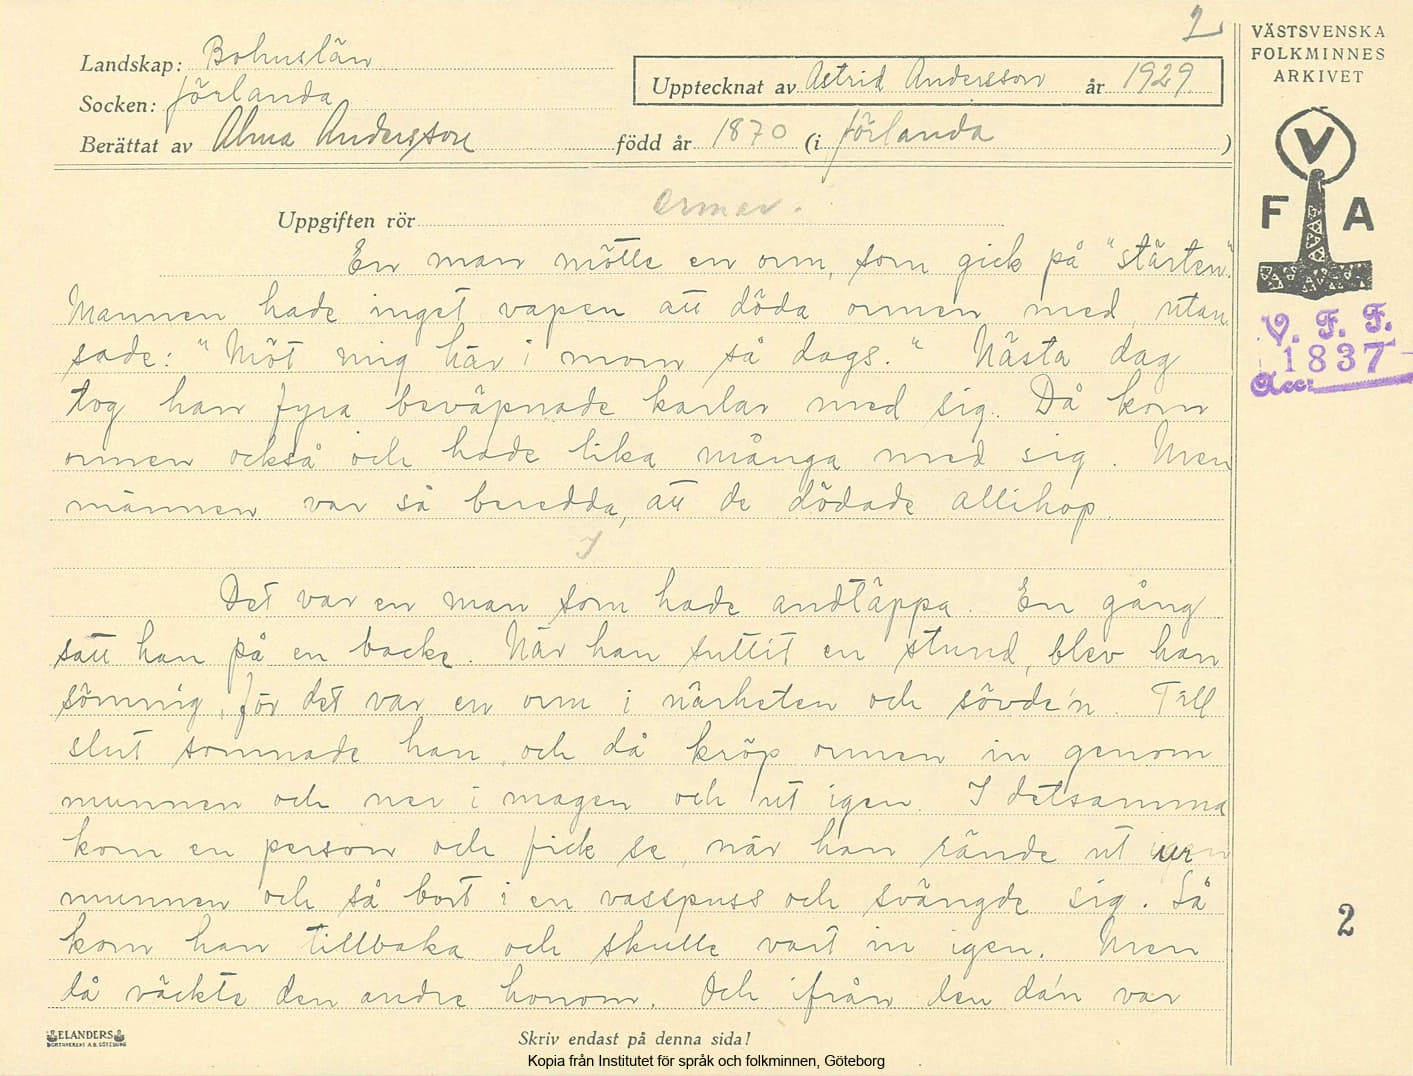 2
VÄSTSVENSKA
FOLKMINNES
ARKIVET
Landskap: Bohuslän
Socken: Jörlanda
Upptecknat av Astrid Andersson år 1929
Berättat av Alma Andersson född år 1870 (i Jörlanda )
V
F A
Uppgiften rör ormar.
En man mötte en orm, som gick på "stärten."
Mannen hade inget vapen att döda ormen med, utan
sade: "Möt mig här i morn så dags." Nästa dag
tog han fyra beväpnade karlar med sig. Då kom
ormen också och hade lika många med sig. Men
männen var så beredda, att de dödade allihop.
V. F. F.
1837
Acc:
Det var en man som hade andtäppa. En gång
satt han på en backe. När han suttit en stund, blev han
sömnig, för det var en orm i närheten och sövde'n. Till
slut somnade han, och då kröp ormen in genom
munnen och ner i magen och ut igen. I detsamma
kom en person och fick se, när han rände ut ur
munnen och så bort i en vasspuss och svängde sig. Så
kom han tillbaka och skulle vart in igen. Men
då väckte den andre honom. Och ifrån den da'n var
2
ELANDERS
BOKTRYCKERI A.B. GÖTEBORG
Skriv endast på denna sida!
Kopia från Institutet för språk och folkminnen, Göteborg